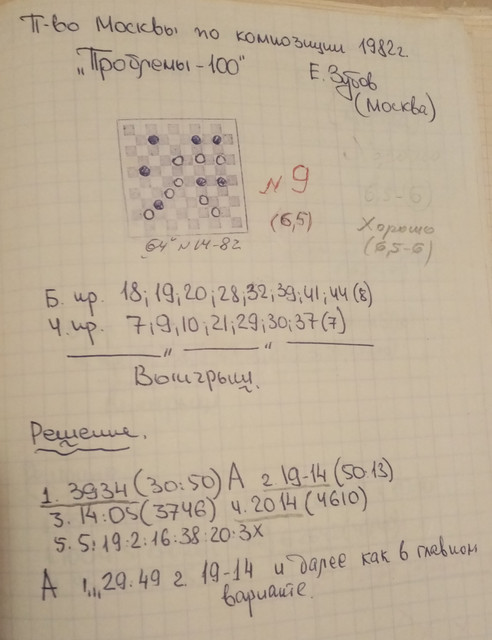 П-во Москвы по композиции 1982г.
„Проблемы-100"
Е. Зубов
(Москва)
N 9
(6,5)
Хорошо
(6,5-6)
„64" N14-82
Б. пр. 18; 19; 20; 28; 32; 39; 41; 44 (8)
Ч. пр. 7; 9; 10; 21; 29; 30; 37 (7)
Выигрыш.
Решение.
1. 3934 (30:50) A 2 19-14 (50:13)
3. 14:05 (3746) 4. 2014 (4610)
5. 5:19:2:16:38:20:3X
A 1... 29:49 2. 19-14 и далее как в главном
варианте.